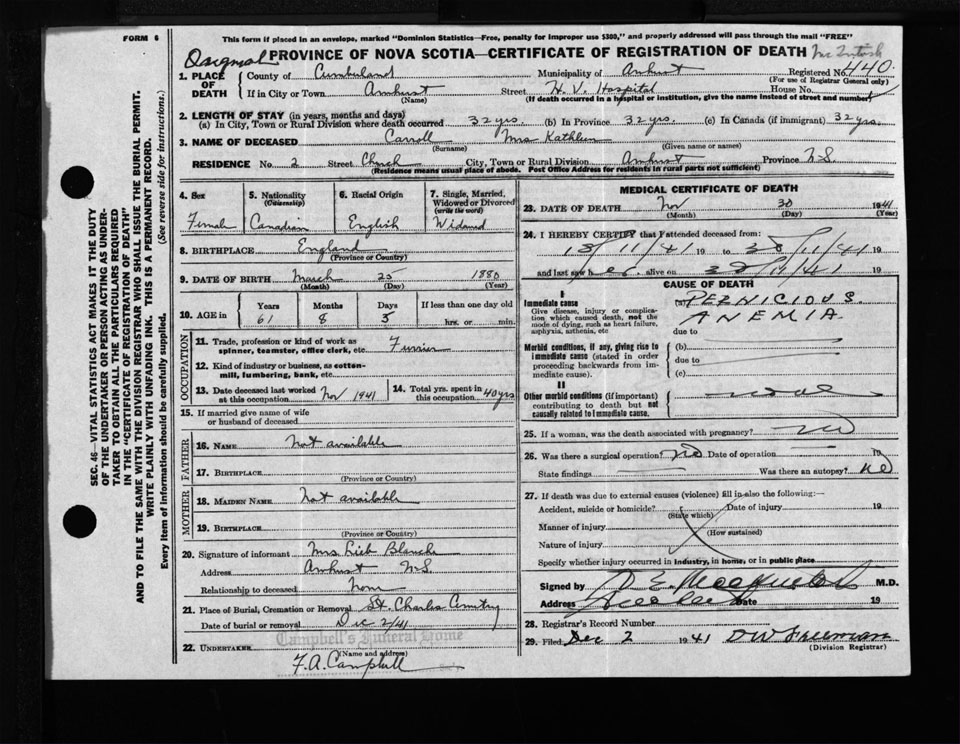 FORM 6
This form if placed in an envelope, marked "Dominion Statistics—Free, penalty for improper use $300," and properly addressed will pass through the mail "FREE"
PROVINCE OF NOVA SCOTIA—CERTIFICATE OF REGISTRATION OF DEATH McIntosh
1. PLACE OF DEATH County of Cumberland Municipality of Amherst Registered No. 440
(For use of Registrar General only)
If in City or Town Amherst Street H. V. Hospital House No.
(Name) (If death occurred in a hospital or institution, give the name instead of street and number)
2. LENGTH OF STAY (in years, months and days)
(a) In City, Town or Rural Division where death occurred 32 yrs. (b) In Province 32 yrs. (c) In Canada (if immigrant) 32 yrs.
3. NAME OF DECEASED Carroll Mrs Kathleen
(Surname) (Given name or names)
RESIDENCE No. 2 Street Church City, Town or Rural Division Amherst Province N.S.
(Residence means usual place of abode. Post Office Address for residents in rural parts not sufficient)
4. Sex 5. Nationality (Citizenship) 6. Racial Origin 7. Single, Married, Widowed or Divorced (write the word)
Female Canadian English Widowed
8. BIRTHPLACE England
(Province or Country)
9. DATE OF BIRTH March 25 1880
(Month) (Day) (Year)
10. AGE in Years Months Days If less than one day old
61 8 5 hrs. or min.
OCCUPATION
11. Trade, profession or kind of work as spinner, teamster, office clerk, etc. Furrier
12. Kind of industry or business, as cotton-mill, lumbering, bank, etc.
13. Date deceased last worked at this occupation Nov 1941 14. Total yrs. spent in this occupation 40 yrs
15. If married give name of wife or husband of deceased
FATHER
16. NAME Not available
17. BIRTHPLACE
(Province or Country)
MOTHER
18. MAIDEN NAME Not available
19. BIRTHPLACE
(Province or Country)
20. Signature of informant Mrs Blanche
Address Amherst N.S.
Relationship to deceased None
21. Place of Burial, Cremation or Removal St. Charles Cemetery
Date of burial or removal Dec 2/41
Campbell's Funeral Home
22. UNDERTAKER
(Name and address)
F.A. Campbell
MEDICAL CERTIFICATE OF DEATH
23. DATE OF DEATH Nov 30 1941
(Month) (Day) (Year)
24. I HEREBY CERTIFY that I attended deceased from:
18/11/41 19 to 30/11/41 19
and last saw her alive on 30/11/41 19
CAUSE OF DEATH
I
Immediate cause (a) PERNICIOUS
Give disease, injury or complication which caused death, not the mode of dying, such as heart failure, asphyxia, asthenia, etc ANEMIA
due to
Morbid conditions, if any, giving rise to immediate cause (stated in order proceeding backwards from immediate cause). (b)
due to
(c)
II
Other morbid conditions (if important) contributing to death but not causally related to immediate cause.
25. If a woman, was the death associated with pregnancy? no
26. Was there a surgical operation? no Date of operation 19
State findings Was there an autopsy? no
27. If death was due to external causes (violence) fill in also the following:—
Accident, suicide or homicide? Date of injury 19
(State which)
Manner of injury
(How sustained)
Nature of injury
Specify whether injury occurred in industry, in home, or in public place
Signed by M.D.
Address Date 19
28. Registrar's Record Number
29. Filed Dec 2 1941 DW Freeman
(Division Registrar)
SEC. 46—VITAL STATISTICS ACT MAKES IT THE DUTY
OF THE UNDERTAKER OR PERSON ACTING AS UNDER-
TAKER TO OBTAIN ALL THE PARTICULARS REQUIRED
IN THE "CERTIFICATE OF REGISTRATION OF DEATH"
AND TO FILE THE SAME WITH THE DIVISION REGISTRAR WHO SHALL ISSUE THE BURIAL PERMIT.
WRITE PLAINLY WITH UNFADING INK. THIS IS A PERMANENT RECORD.
Every item of information should be carefully supplied. (See reverse side for instructions.)